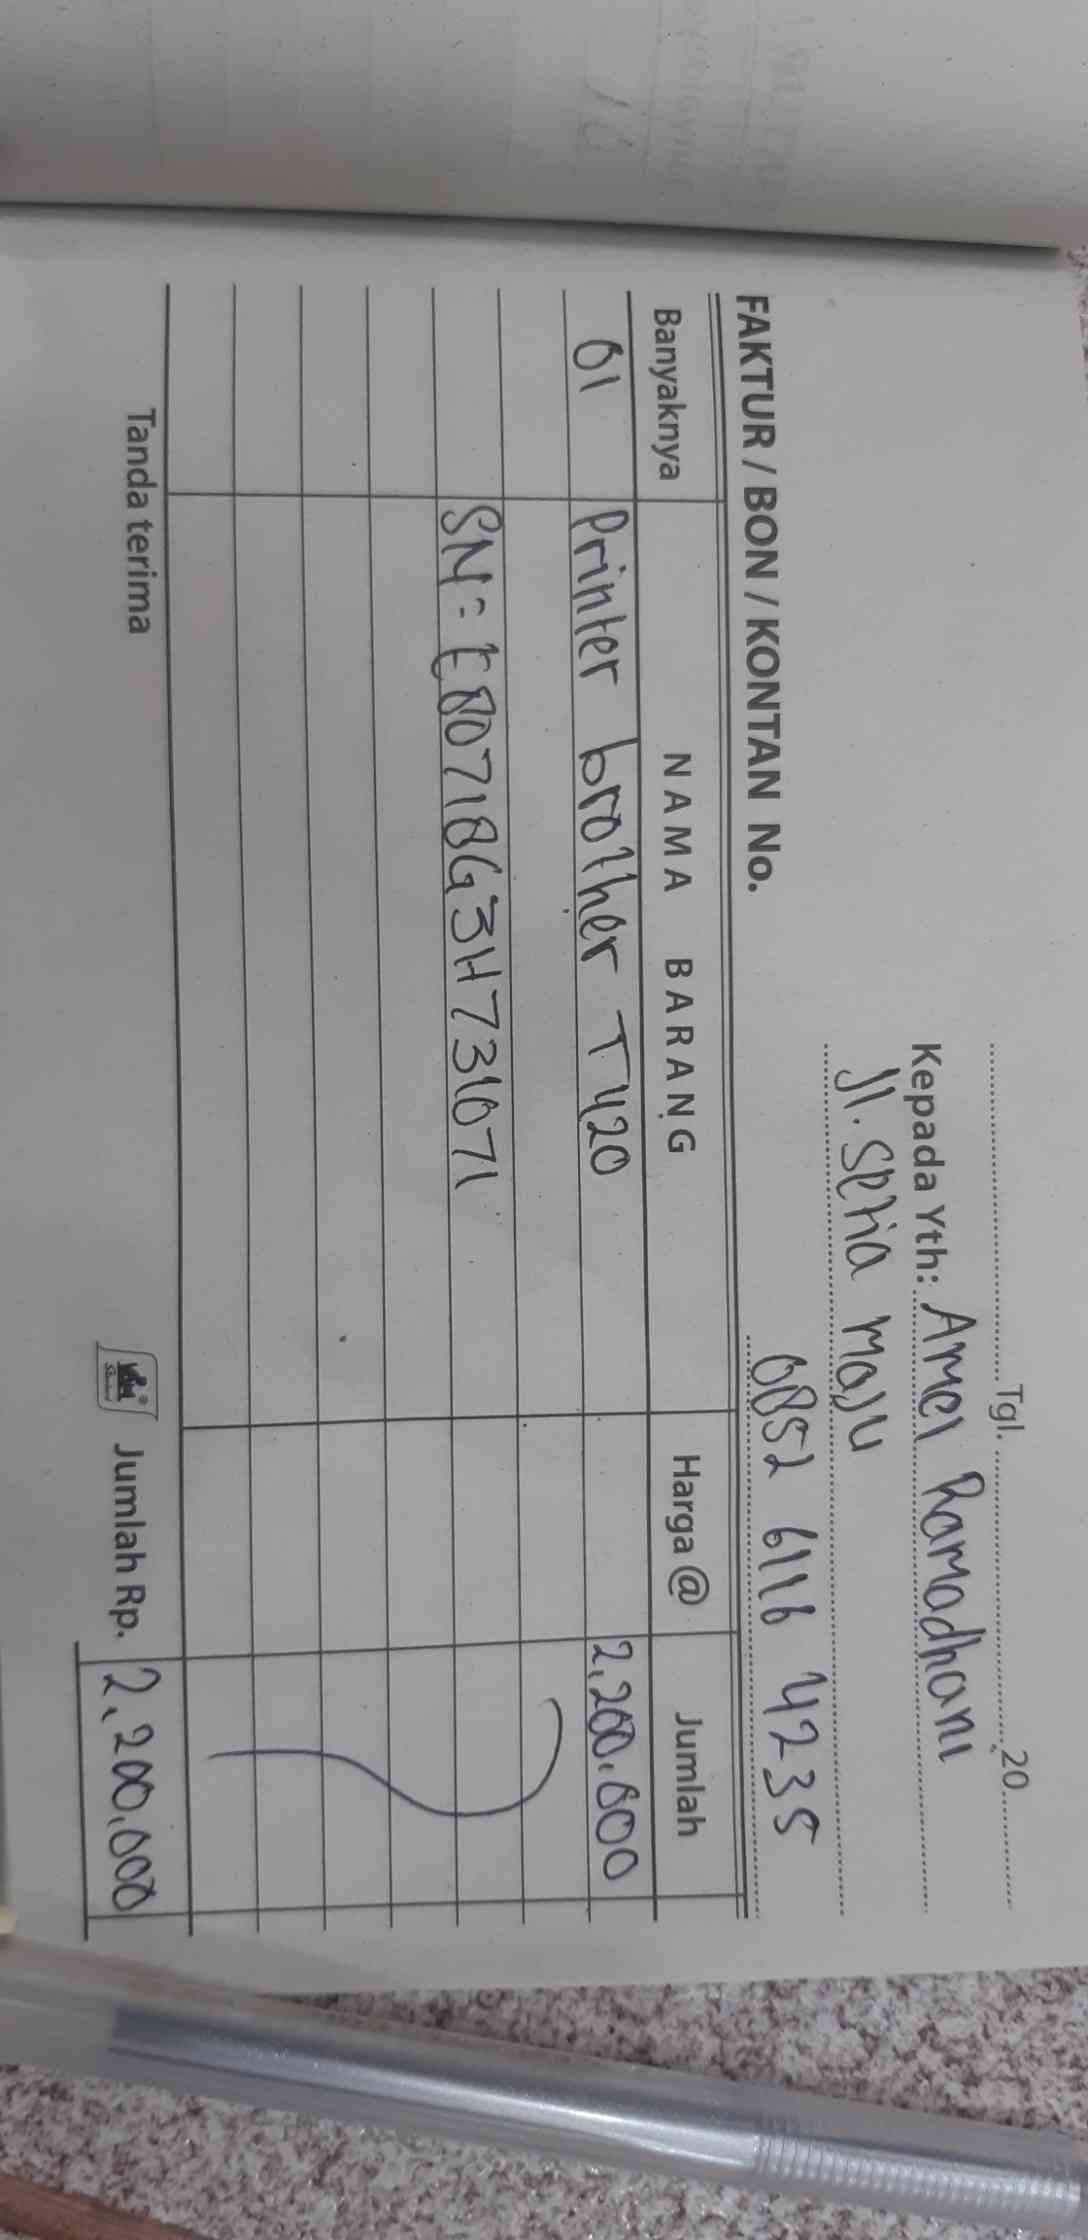 Tgl. 20
Kepada Yth: Amei Ramadhani
Jl. Setia maju
0852 6116 4235
FAKTUR / BON / KONTAN No.
Banyaknya NAMA BARANG Harga @ Jumlah
01 Printer brother T420 2.200.000
SN = E80718G3H731071
Tanda terima Jumlah Rp. 2.200.000